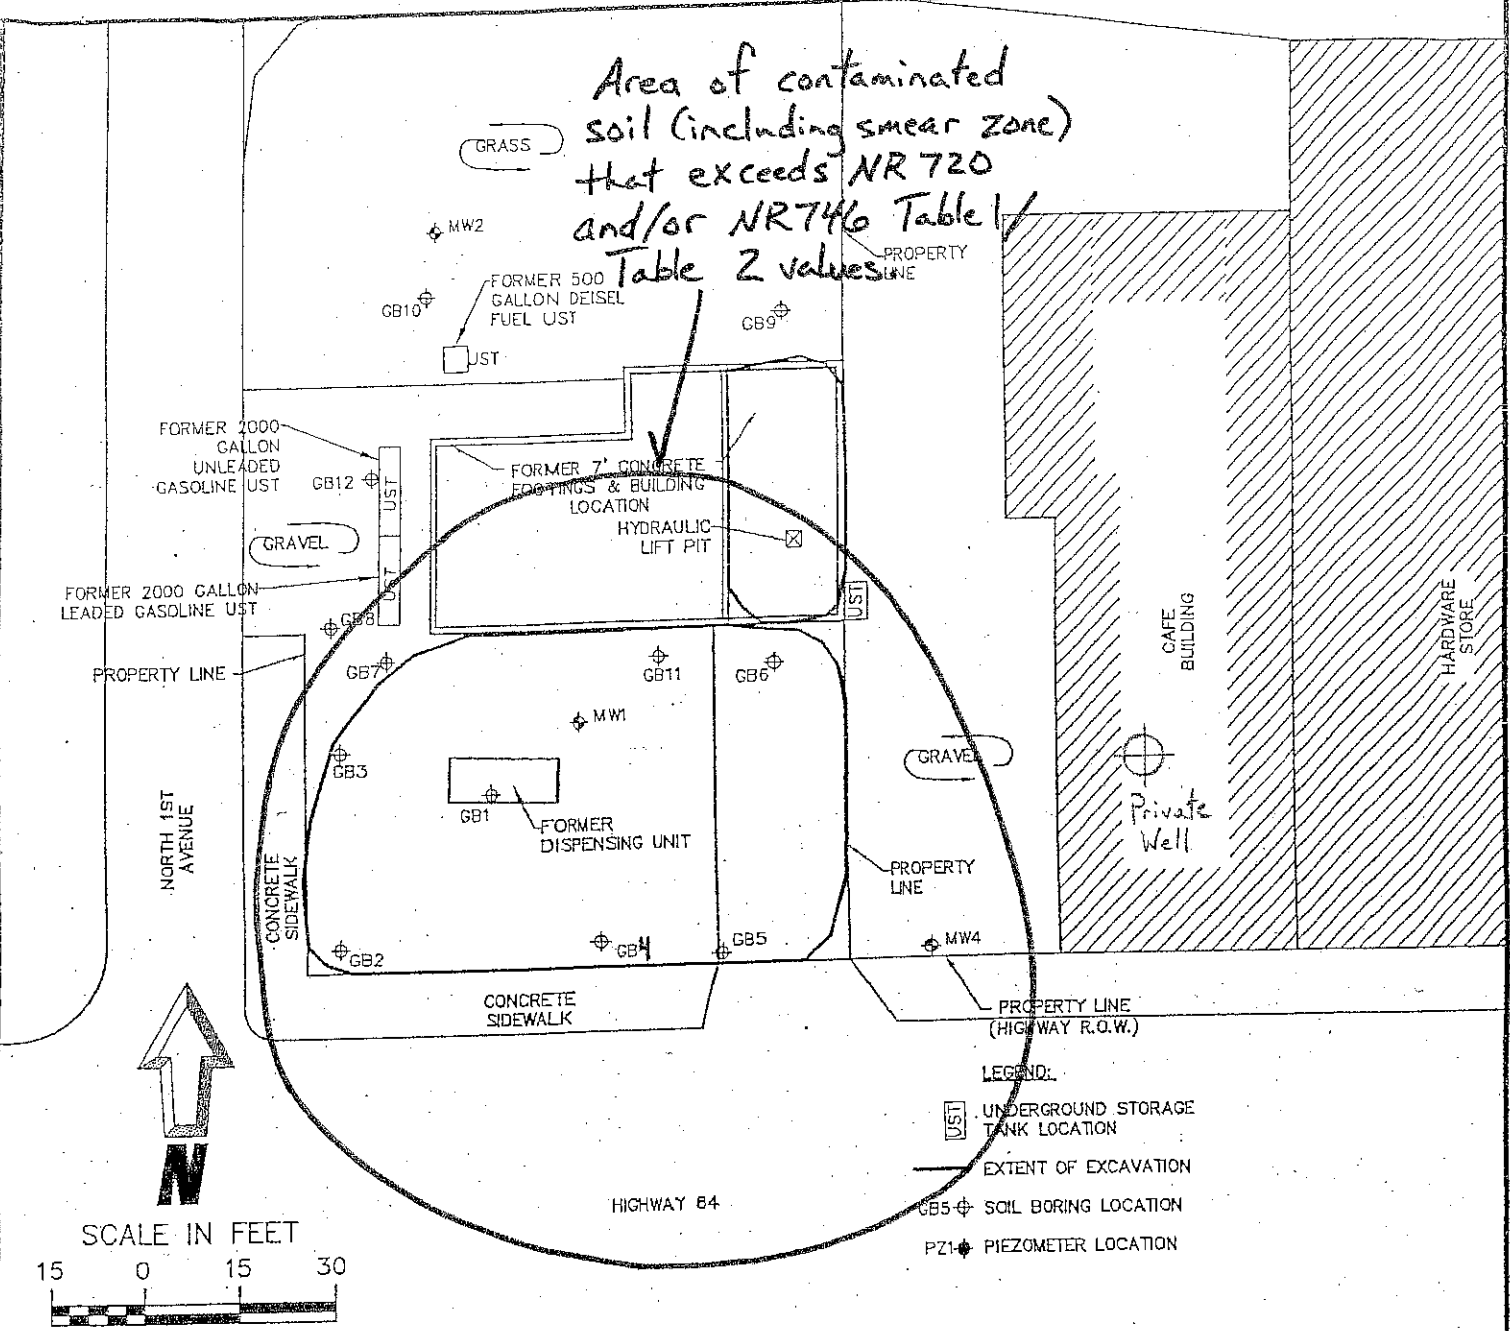 Area of contaminated
soil (including smear zone)
that exceeds NR 720
and/or NR746 Table 1/
Table 2 values
GRASS
MW2
PROPERTY
LINE
FORMER 500
GALLON DEISEL
FUEL UST
GB10
GB9
UST
FORMER 2000
GALLON
UNLEADED
GASOLINE UST
GB12
UST
FORMER 7' CONCRETE
FOOTINGS & BUILDING
LOCATION
HYDRAULIC
LIFT PIT
GRAVEL
FORMER 2000 GALLON
LEADED GASOLINE UST
UST
UST
GB8
PROPERTY LINE
GB7
GB11
GB6
CAFE
BUILDING
HARDWARE
STORE
MW1
GB3
GRAVEL
GB1
FORMER
DISPENSING UNIT
Private
Well
NORTH 1ST
AVENUE
CONCRETE
SIDEWALK
PROPERTY
LINE
GB2
GB4
GB5
MW4
CONCRETE
SIDEWALK
PROPERTY LINE
(HIGHWAY R.O.W.)
N
LEGEND:
UST UNDERGROUND STORAGE
TANK LOCATION
EXTENT OF EXCAVATION
HIGHWAY 84
GB5 SOIL BORING LOCATION
PZ1 PIEZOMETER LOCATION
SCALE IN FEET
15 0 15 30